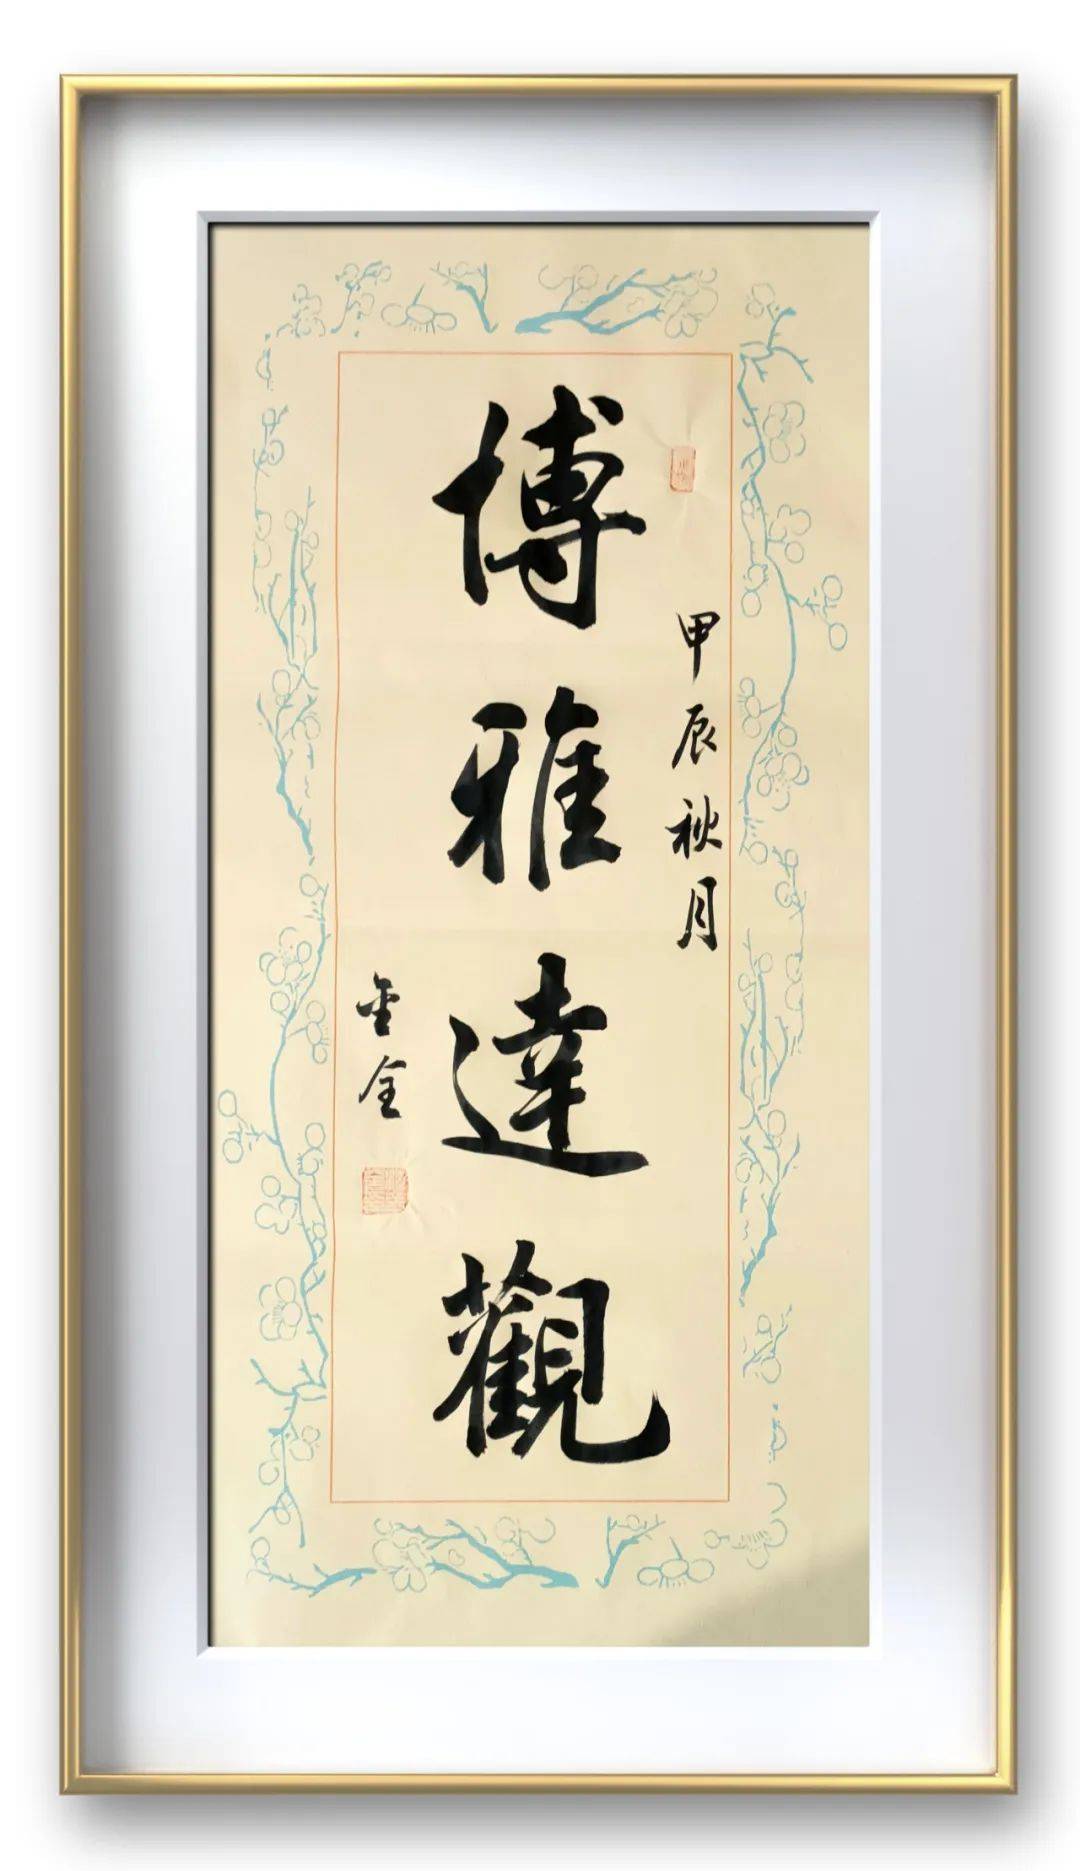 甲辰秋月
博雅達觀
金全